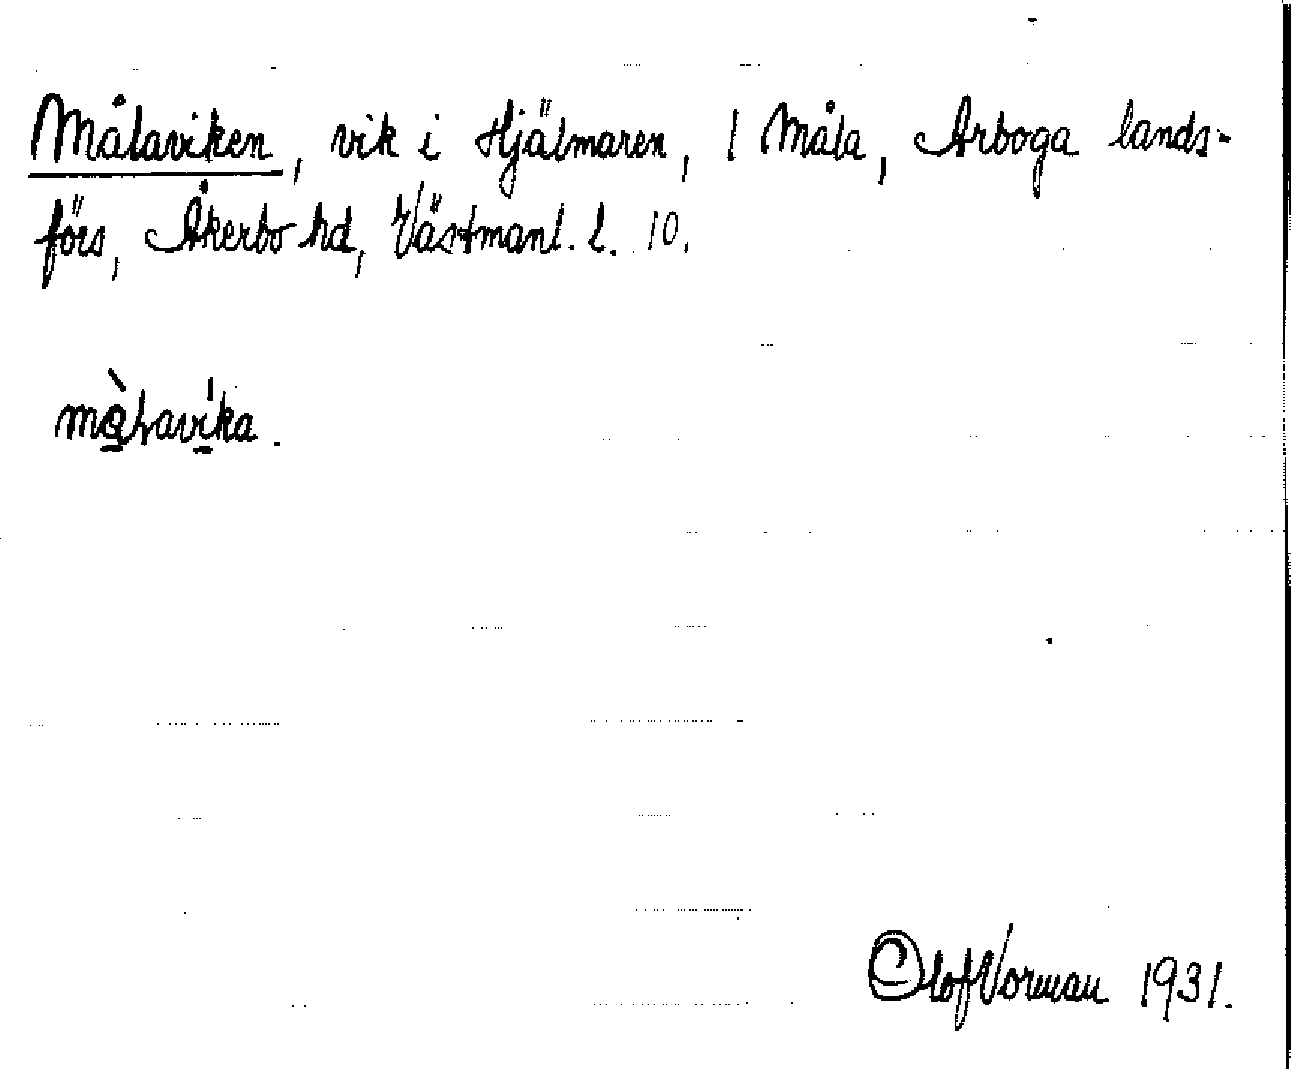 Målaviken, vik i Hjälmaren, 1 Måla, Arboga lands-
förs, Åkerbo hd, Västmanl. l. 10.
màlavíka.
Olof Vorman 1931.